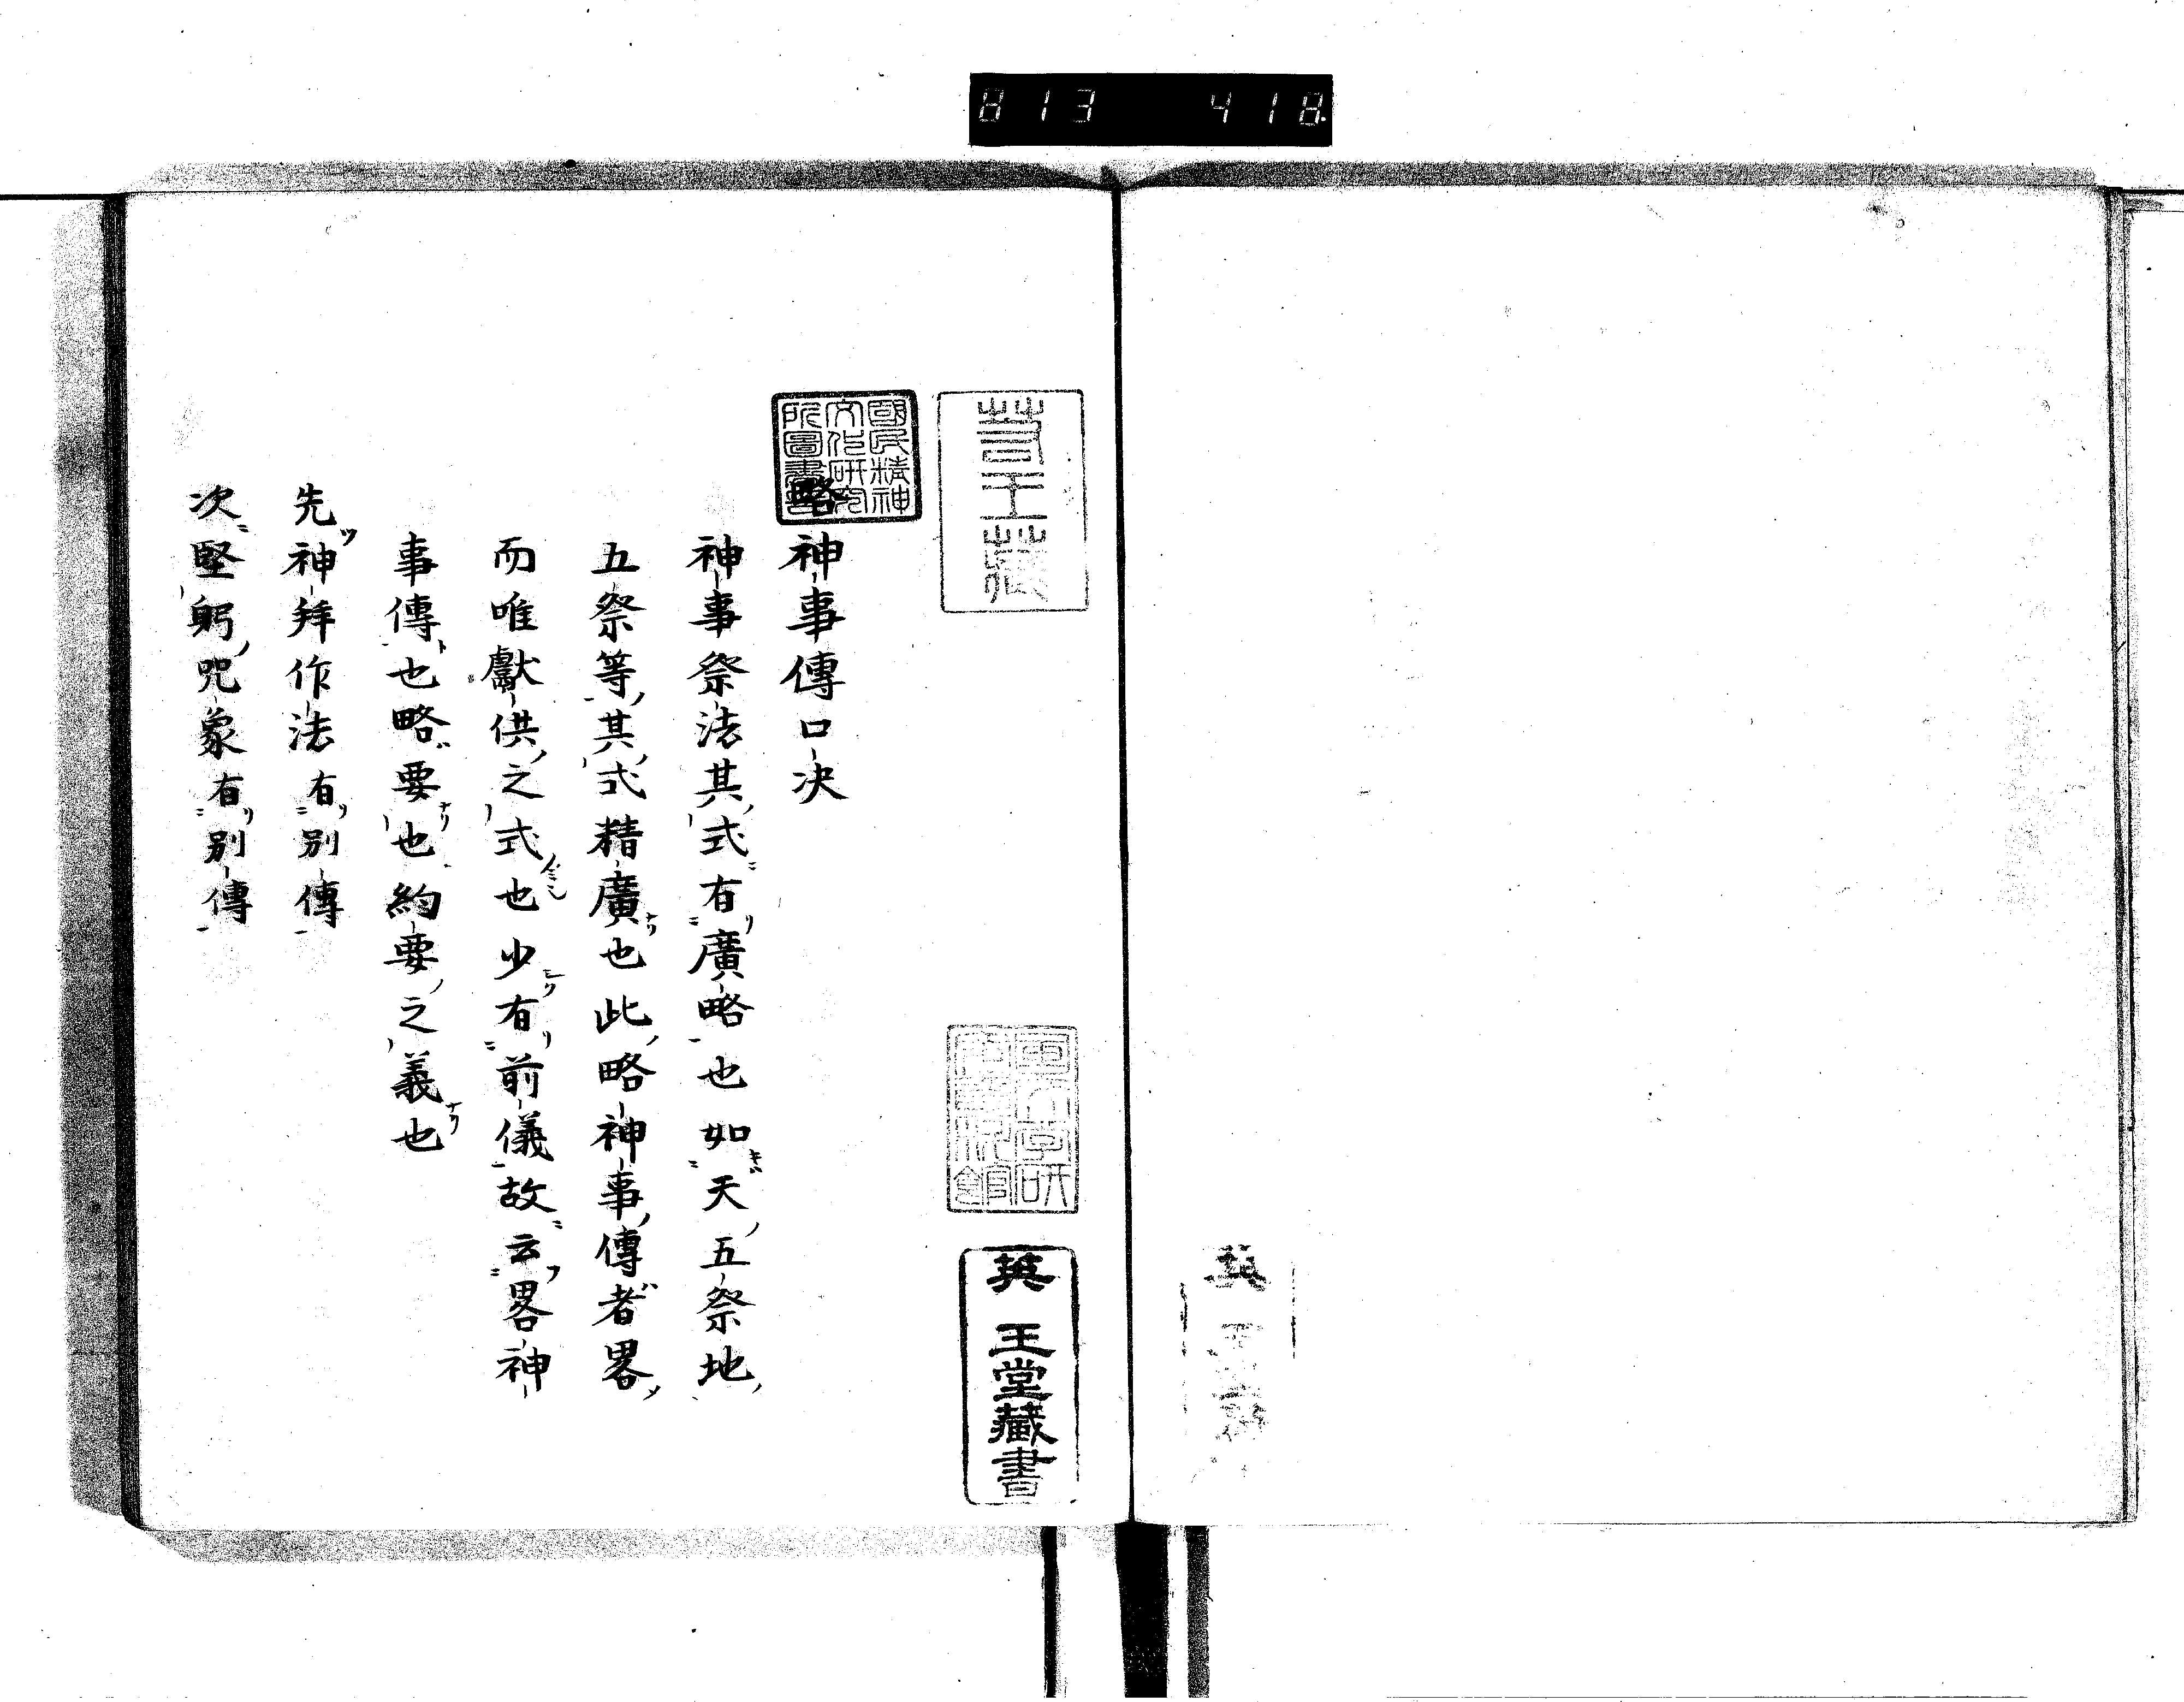 813 418
國民精神
文化研究
所圖書印
英王堂藏書
略神事傳口決
神事祭法其式有廣略也如天五祭地
五祭等其式精廣也此略神事傳者畧
而唯獻供之式也少有前儀故云畧神
事傳也略要也約要之義也
先神拜作法有別傳
次堅躬咒象有別傳